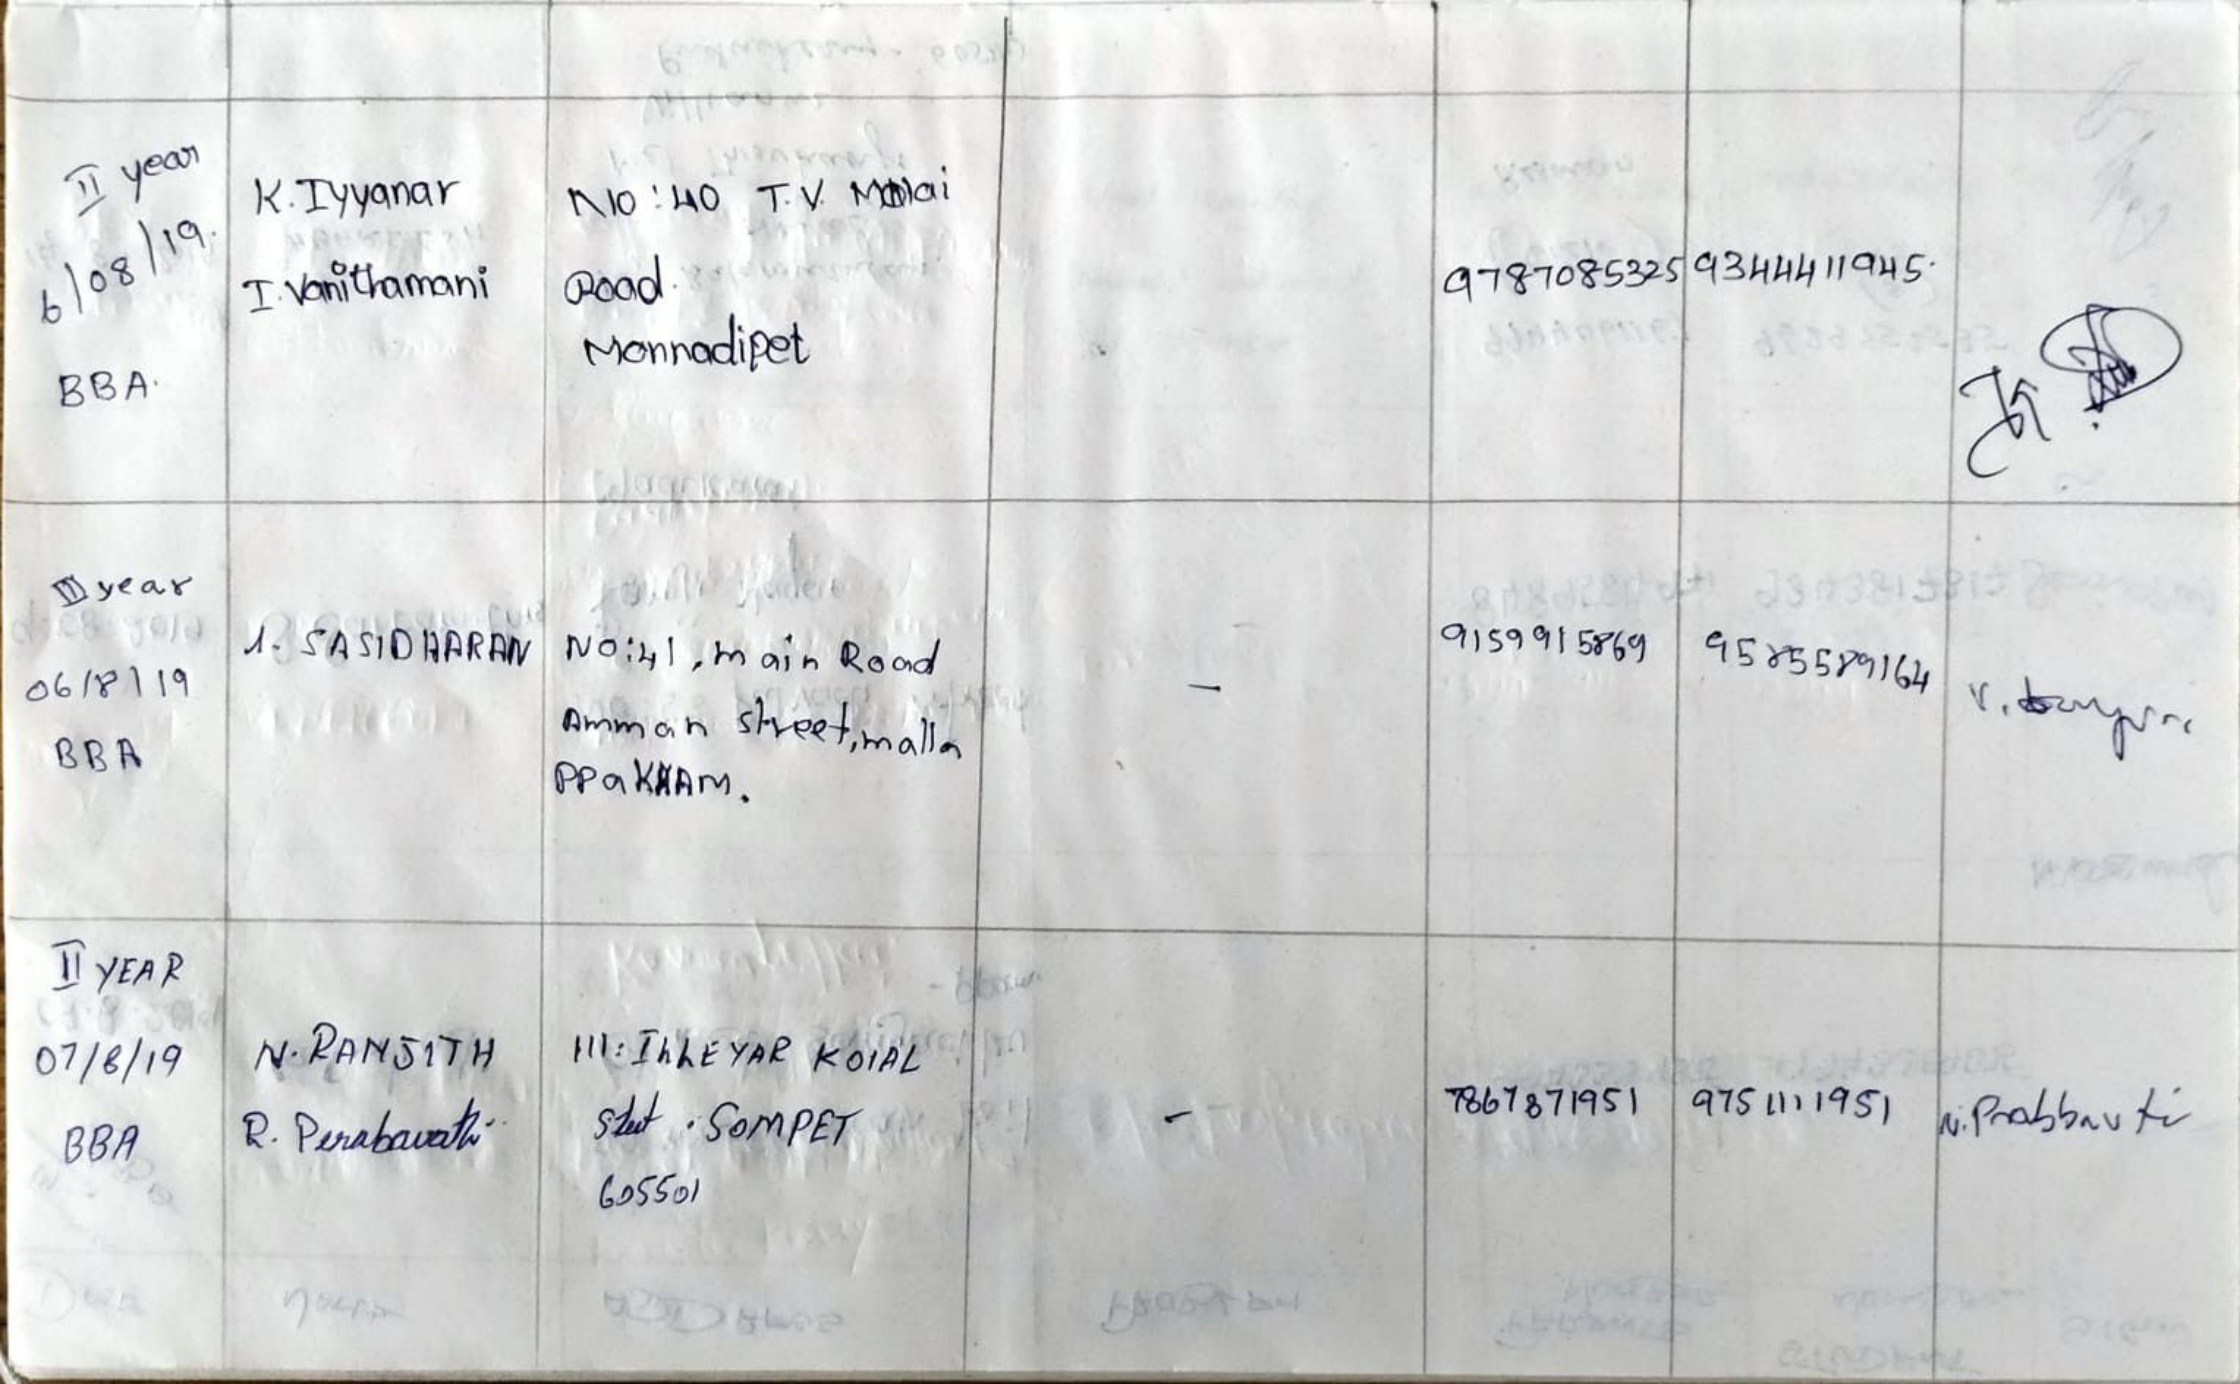 II year
6/08/19.
BBA.
K. Iyyanar
I. Vanithamani
NO: 40 T.V. Malai
Road.
Mannadipet
9787085325
9344411945.
II year
06/8/19
BBA
1. SASIDHARAN
NO:41, main Road
Amman street, malla
PPaKHAM.
-
9159915869
9585589164
II YEAR
07/8/19
BBA
N. RANJITH
R. Perabavathi
111: ILLEYAR KOIAL
SOMPET
605501
-
7867871951
9751111951
N. Prabbavti